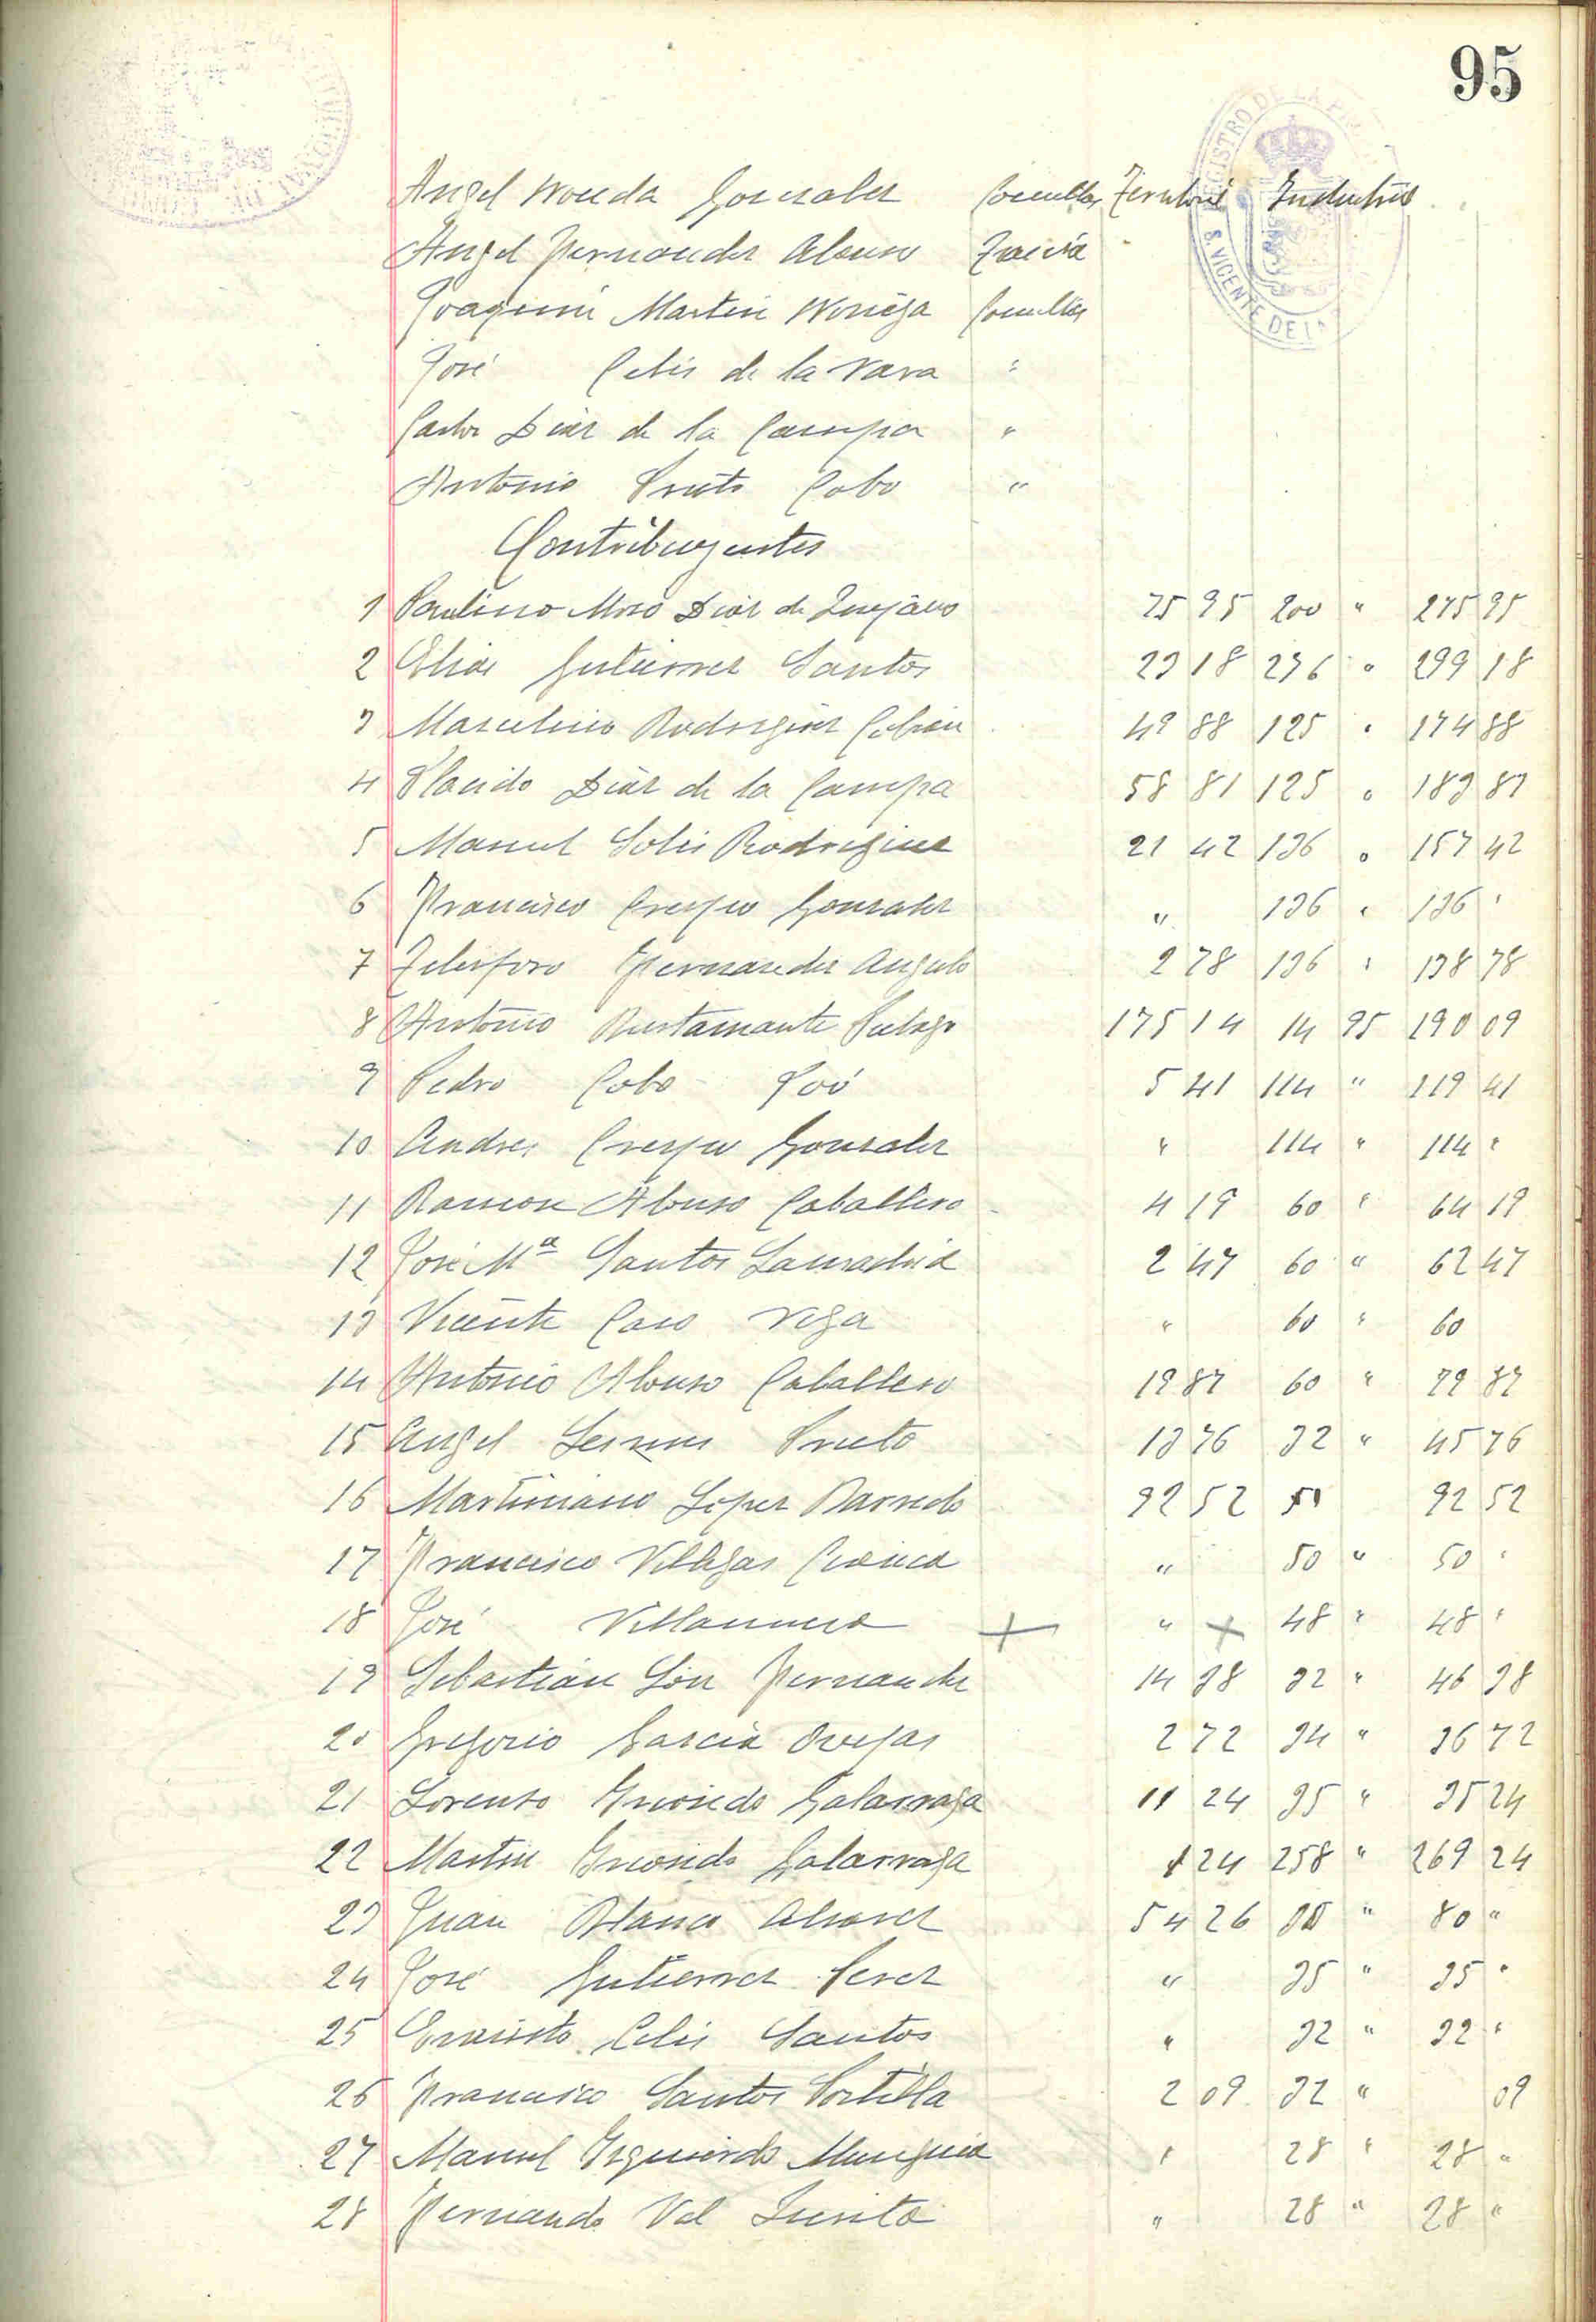 95
Angel Noceda Gonzalez Comillas Territorial Industrial
Angel Fernandez Alonso
Joaquin Martin Noriega Comillas
José Celis de la Vara "
Carlos Diaz de la Campa "
Antonio Prieto Cobo "
Contribuyentes
1 Paulino Moro Diaz de Quijano 75 95 200 " 275 95
2 Elias Gutierrez Santos 23 18 276 " 299 18
3 Marcelino Rodriguez Cebrian 49 88 125 " 174 88
4 Placido Diaz de la Campa 58 81 125 " 183 81
5 Manuel Solis Rodriguez 21 42 136 " 157 42
6 Francisco Crespo Gonzalez " 136 " 136 "
7 Telesforo Fernandez Angulo 2 78 136 " 138 78
8 Antonio Bustamante 175 14 14 95 190 09
9 Pedro Cobo Poó 5 41 114 " 119 41
10 Andres Crespo Gonzalez " 114 " 114 "
11 Ramon Alonso Caballero 4 19 60 " 64 19
12 José Mª Santos Lamadrid 2 47 60 " 62 47
13 Vicente Caso Vega " 60 " 60
14 Antonio Alonso Caballero 19 87 60 " 79 87
15 Angel Prieto 13 76 32 " 45 76
16 Martiniano Lopez Barredo 92 52 92 52
17 Francisco Villegas " 50 " 50 "
18 José Villanueva + " + 48 " 48 "
19 Sebastian Fernandez 14 38 32 " 46 38
20 Gregorio Garcia Ovejas 2 72 34 " 36 72
21 Lorenzo Galarraga 11 24 25 " 35 24
22 Martin Galarraga 1 24 258 " 269 24
23 Juan Blanco Alvarez 54 26 " 80 "
24 José Gutierrez Perez " 35 " 35 "
25 Evaristo Celis Santos " 32 " 32 "
26 Francisco Santos Portilla 2 09 32 " 09
27 Manuel Izquierdo Munguia " 28 " 28 "
28 Fernando Val Zurita " 28 " 28 "